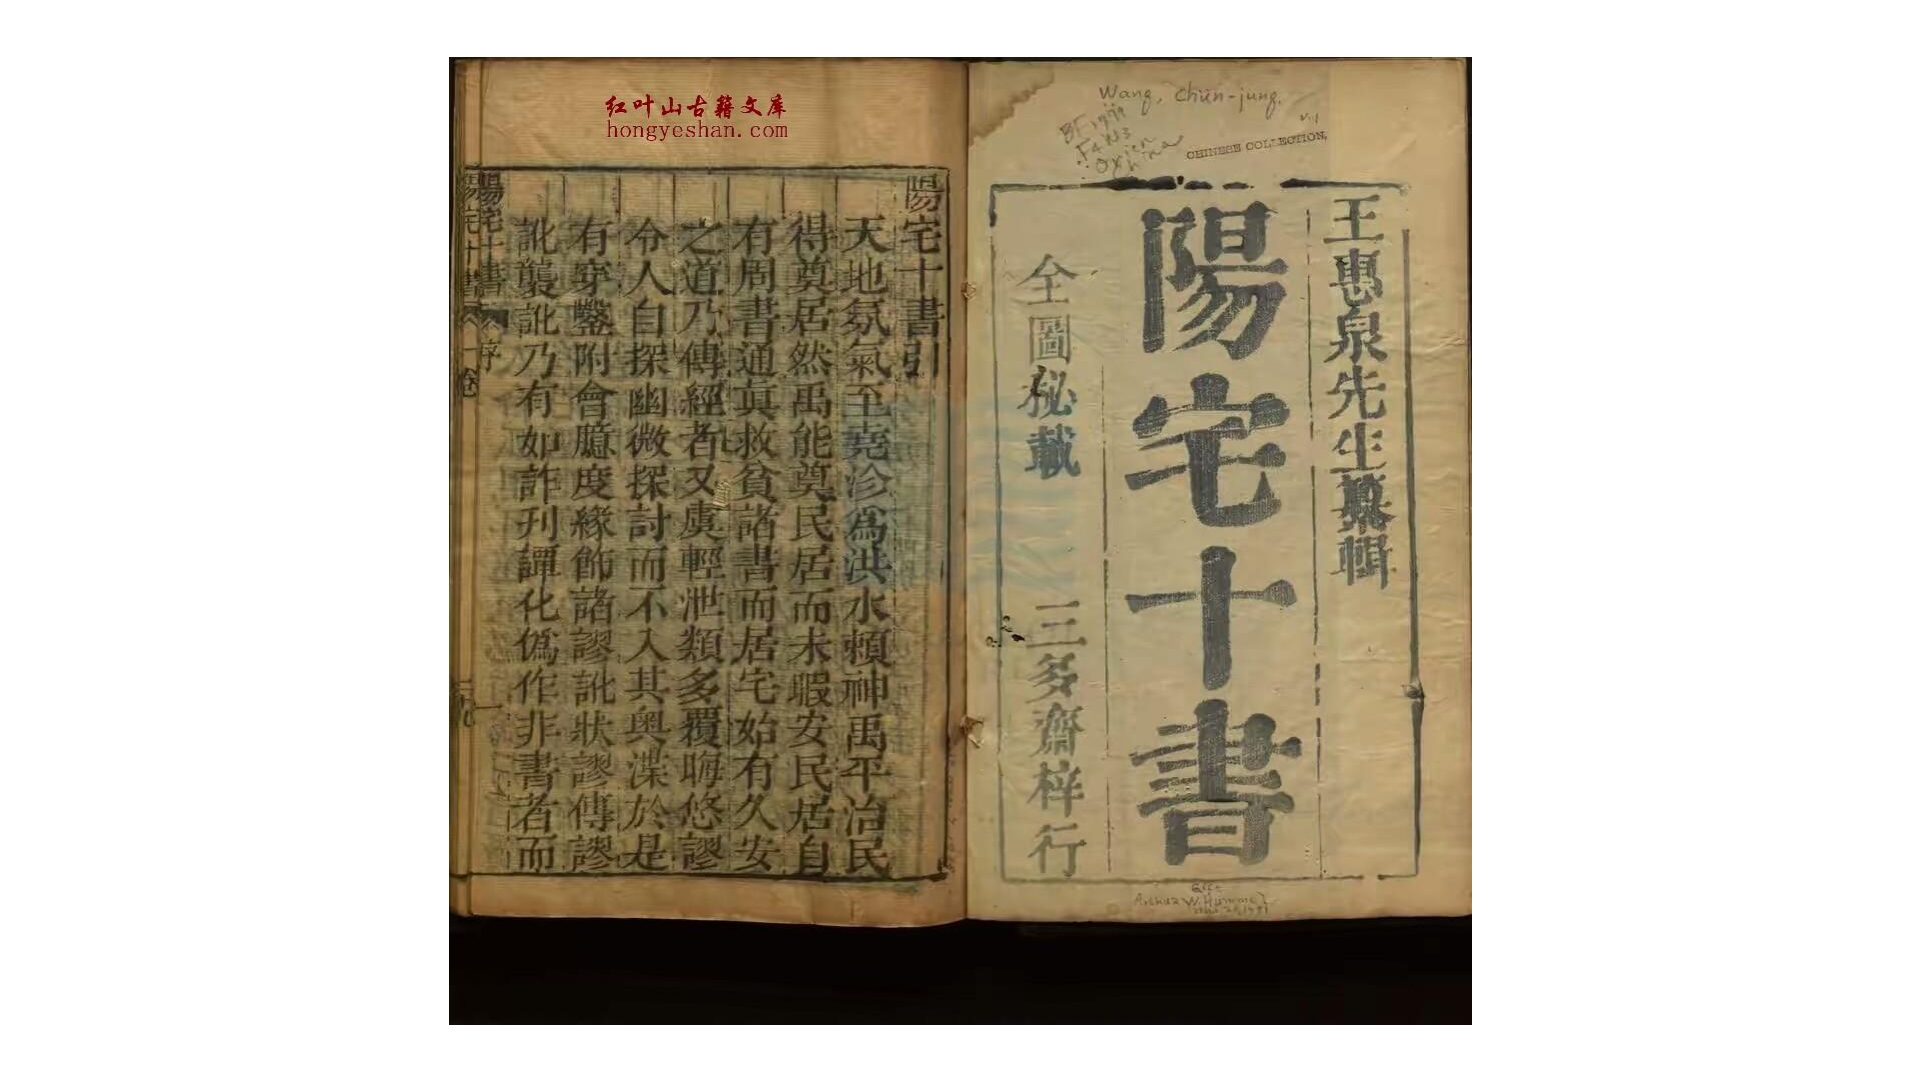 红叶山古籍文库
hongyeshan.com
Wang, Chün-jung.
BF1779
F4W3
Orien
China
CHINESE COLLECTION,
王惠泉先生纂輯
陽宅十書
全圖秘載 三多齋梓行
Gift
Arthur W. Hummel
陽宅十書引
天地氛氣至堯沴為洪水賴神禹平治民
得奠居然禹能奠民居而未暇安民居自
有周書通真救貧諸書而居宅始有久安
之道乃傳經者又虞輕泄類多覆晦悠謬
令人自探幽微探討而不入其奧渫於是
有穿鑿附會臆度緣飾諸謬訛狀謬傳謬
訛襲訛乃有如詐刊譚化偽作非書者而
陽宅十書 序 一
陽宅十書 一卷